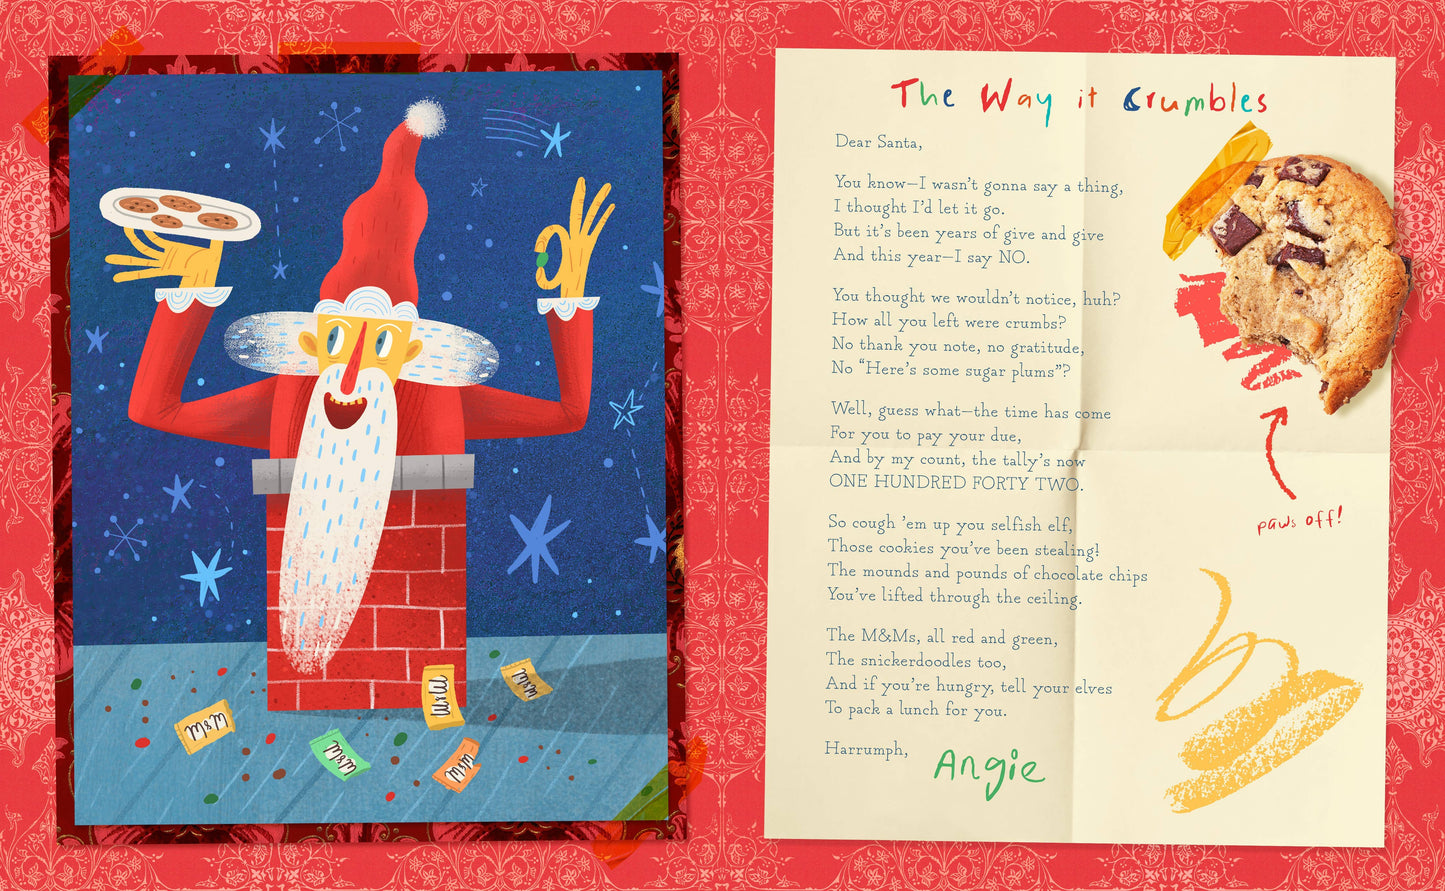 M&M
M&M
M&M
M&M
M&M
The Way it Crumbles
Dear Santa,
You know—I wasn't gonna say a thing,
I thought I'd let it go.
But it's been years of give and give
And this year—I say NO.
You thought we wouldn't notice, huh?
How all you left were crumbs?
No thank you note, no gratitude,
No “Here's some sugar plums”?
Well, guess what—the time has come
For you to pay your due,
And by my count, the tally's now
ONE HUNDRED FORTY TWO.
So cough 'em up you selfish elf,
Those cookies you've been stealing!
The mounds and pounds of chocolate chips
You've lifted through the ceiling.
The M&Ms, all red and green,
The snickerdoodles too,
And if you're hungry, tell your elves
To pack a lunch for you.
Harrumph,
Angie
paws off!